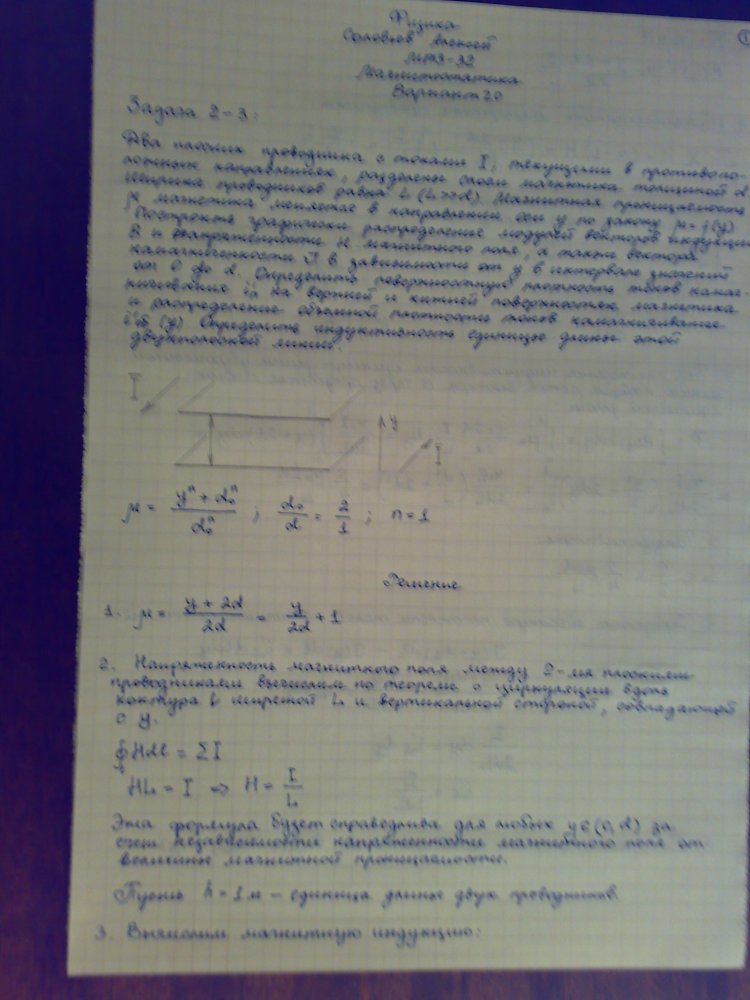 1
Физика
Соловьев Алексей
МТ3-32
Магнитостатика
Вариант 20
Задача 2-3:
Два плоских проводника с токами I, текущими в противопо-
ложных направлениях, разделены слоем магнетика толщиной d.
Ширина проводников равна L (L>>d). Магнитная проницаемость
μ магнетика меняется в направлении оси y по закону μ=f(y).
Построить графически распределение модулей векторов индукции
B и напряженности H магнитного поля, а также вектора
намагниченности J в зависимости от y в интервале значений
от 0 до d. Определить поверхностную плотность токов намаг-
ничивания на верхней и нижней поверхностях магнетика
и распределение объемной плотности токов намагничивания
(y). Определить индуктивность единицы длины этой
двухполосной линии.
I
y
I
μ = (y^n + d₀^n)/d₀^n ; d₀/d = 2/1 ; n=1
Решение
1. μ = (y + 2d)/2d = y/2d + 1
2. Напряженность магнитного поля между 2-мя плоскими
проводниками вычислим по теореме о циркуляции вдоль
контура с шириной L и вертикальной стороной, совпадающей
с y.
∮Hdl = ΣI
HL = I => H = I/L
Эта формула будет справедлива для любых y∈(0,d) за
счет независимости напряженности магнитного поля от
величины магнитной проницаемости.
Пусть h = 1м – единица длины двух проводников.
3. Вычислим магнитную индукцию: